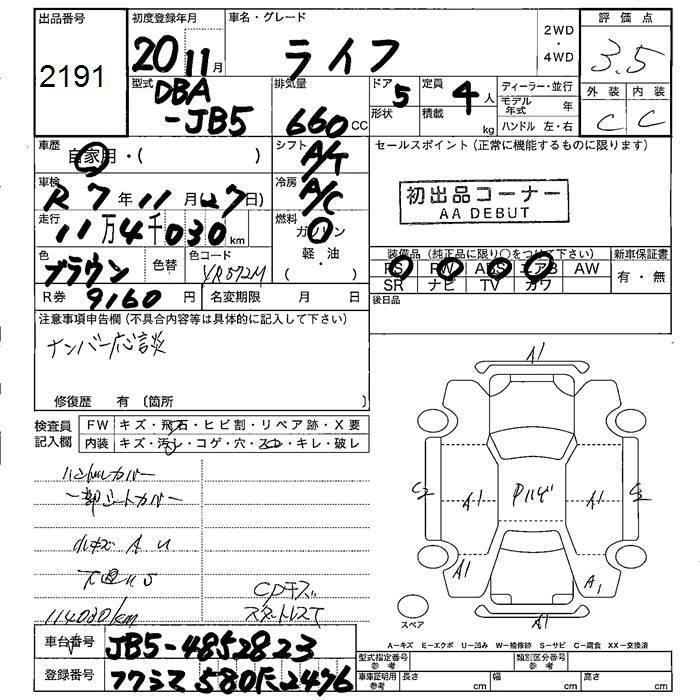 出品番号 初度登録年月 車名・グレード 評価点
2191 20 11月 ライフ 2WD・4WD 3.5
型式 排気量 ドア 定員 ディーラー・並行 外装 内装
DBA-JB5 660CC 5 4人 モデル年式 年 C C
形状 積載 kg ハンドル 左・右
車歴 自家用・( ) シフト A/T セールスポイント(正常に機能するものに限ります)
車検 R7年11月(27日) 冷房 A/C 初出品コーナー
AA DEBUT
走行 11万4千030km 燃料 ガソリン
軽・油
( )
色 ブラウン 色替 色コード YR572M 装備品(純正品に限り○をつけて下さい) 新車保証書
PS PW ABS エアB AW 有・無
SR ナビ TV カワ
R券 9160円 名変期限 月 日 後日品
注意事項申告欄(不具合内容等は具体的に記入して下さい)
ナンバー応談
修復歴 有(箇所 )
検査員記入欄 FW キズ・飛石・ヒビ割・リペア跡・X要
内装 キズ・汚レ・コゲ・穴・スレ・キレ・破レ
ハンドルカバー
一部シートカバー
小キズ A U
CPキズ
114030km スタットレスT
A1
C2 A1 A1 C2
A1 A1
A1
スペア
A−キズ E−エクボ U−凹み W−補修跡 S−サビ C−腐食 XX−交換済
車台番号 JB5-4852823 型式指定番号 参考 類別区分番号 参考
登録番号 580 2476 車庫証明用 参考 長さ cm 幅 cm 高さ cm